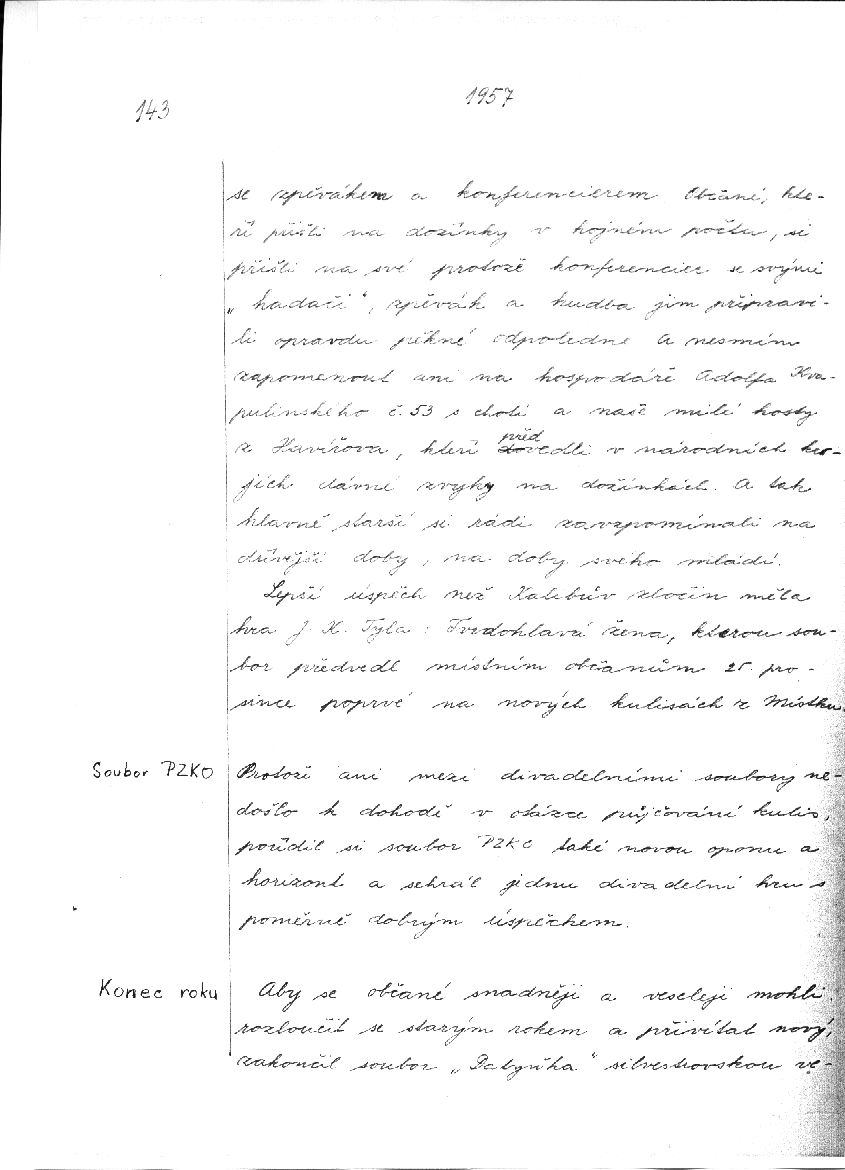 143
1957
se zpěvákem a konferencierem. Občané, kte-
ří přišli na dožínky v hojném počtu, si
přišli na své protože konferencier se svými
„hadači“, zpěvák a hudba jim připravi-
li opravdu pěkné odpoledne. A nesmím
zapomenout ani na hospodáře Adolfa Kva-
pulinského č. 53 s chotí a naše milé hosty
z Havířova, kteří předvedli v národních kro-
jích dávné zvyky na dožínkách. A tak
hlavně starší si rádi zavzpomínali na
dřívější doby, na doby svého mládí.
Lepší úspěch než Kalibův zločin měla
hra J. K. Tyla: Tvrdohlavá žena, kterou sou-
bor předvedl místním občanům 25. pro-
since poprvé na nových kulisách z Místku.
Soubor PZKO
Protože ani mezi divadelními soubory ne-
došlo k dohodě v otázce půjčování kulis,
pořídil si soubor PZKO také novou oponu a
horizont a sehrál jednu divadelní hru s
poměrně dobrým úspěchem.
Konec roku
Aby se občané snadněji a veseleji mohli
rozloučit se starým rokem a přivítat nový,
zakončil soubor „ “ silvestrovskou ve-